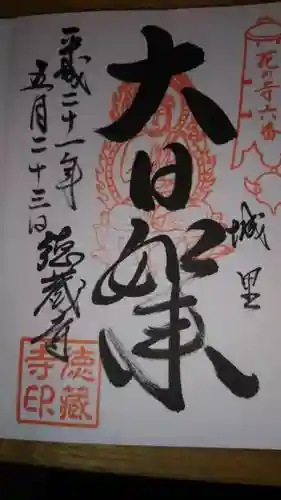 花の寺六番
城里
大日如来
平成二十一年
五月二十三日
徳蔵寺
徳藏
寺印